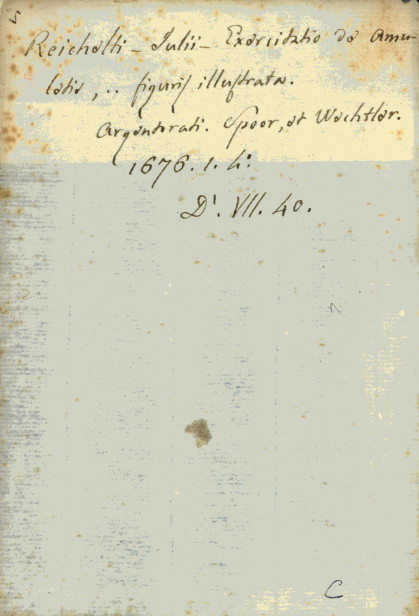 5
Reichelti - Julii - Exercitatio de Amu-
letis, .. figuris illustrata.
Argentorati. Spoor, et Wechtler.
1676. 1. 4:
D'. VII. 40.
C